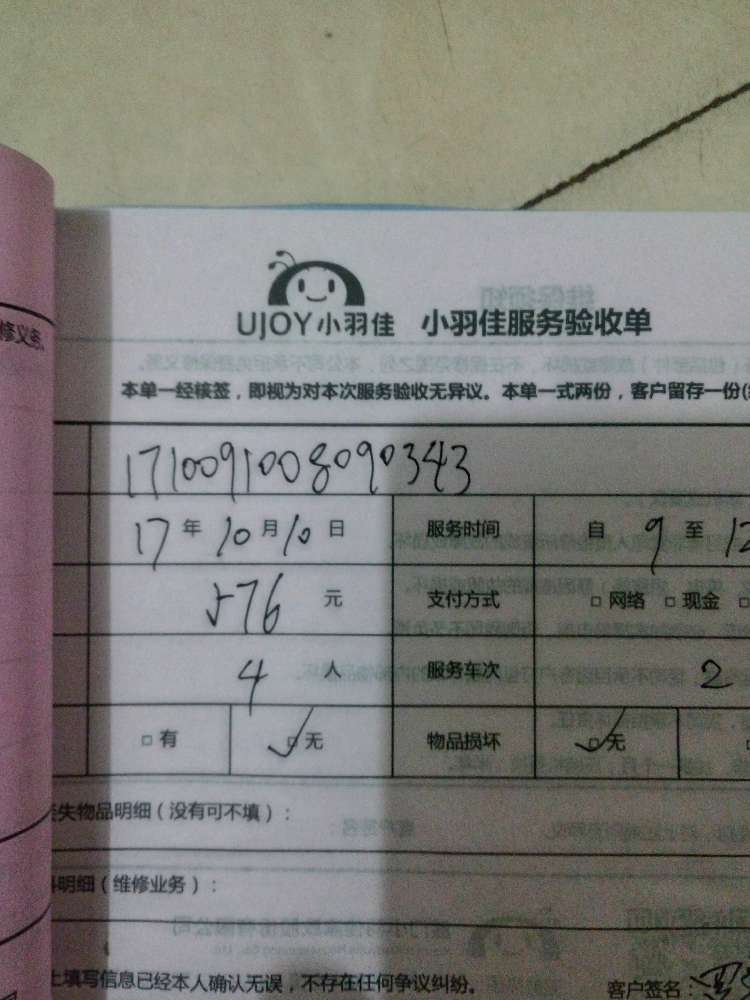 UJOY小羽佳 小羽佳服务验收单
本单一经核签，即视为对本次服务验收无异议。本单一式两份，客户留存一份
修义务
1710091008090343
17年10月10日 服务时间 自9至12
576元 支付方式 □网络 □现金
4人 服务车次 2
□有 □无 物品损坏 □无
失物品明细（没有可不填）：
明细（维修业务）：
上填写信息已经本人确认无误，不存在任何争议纠纷。 客户签名：